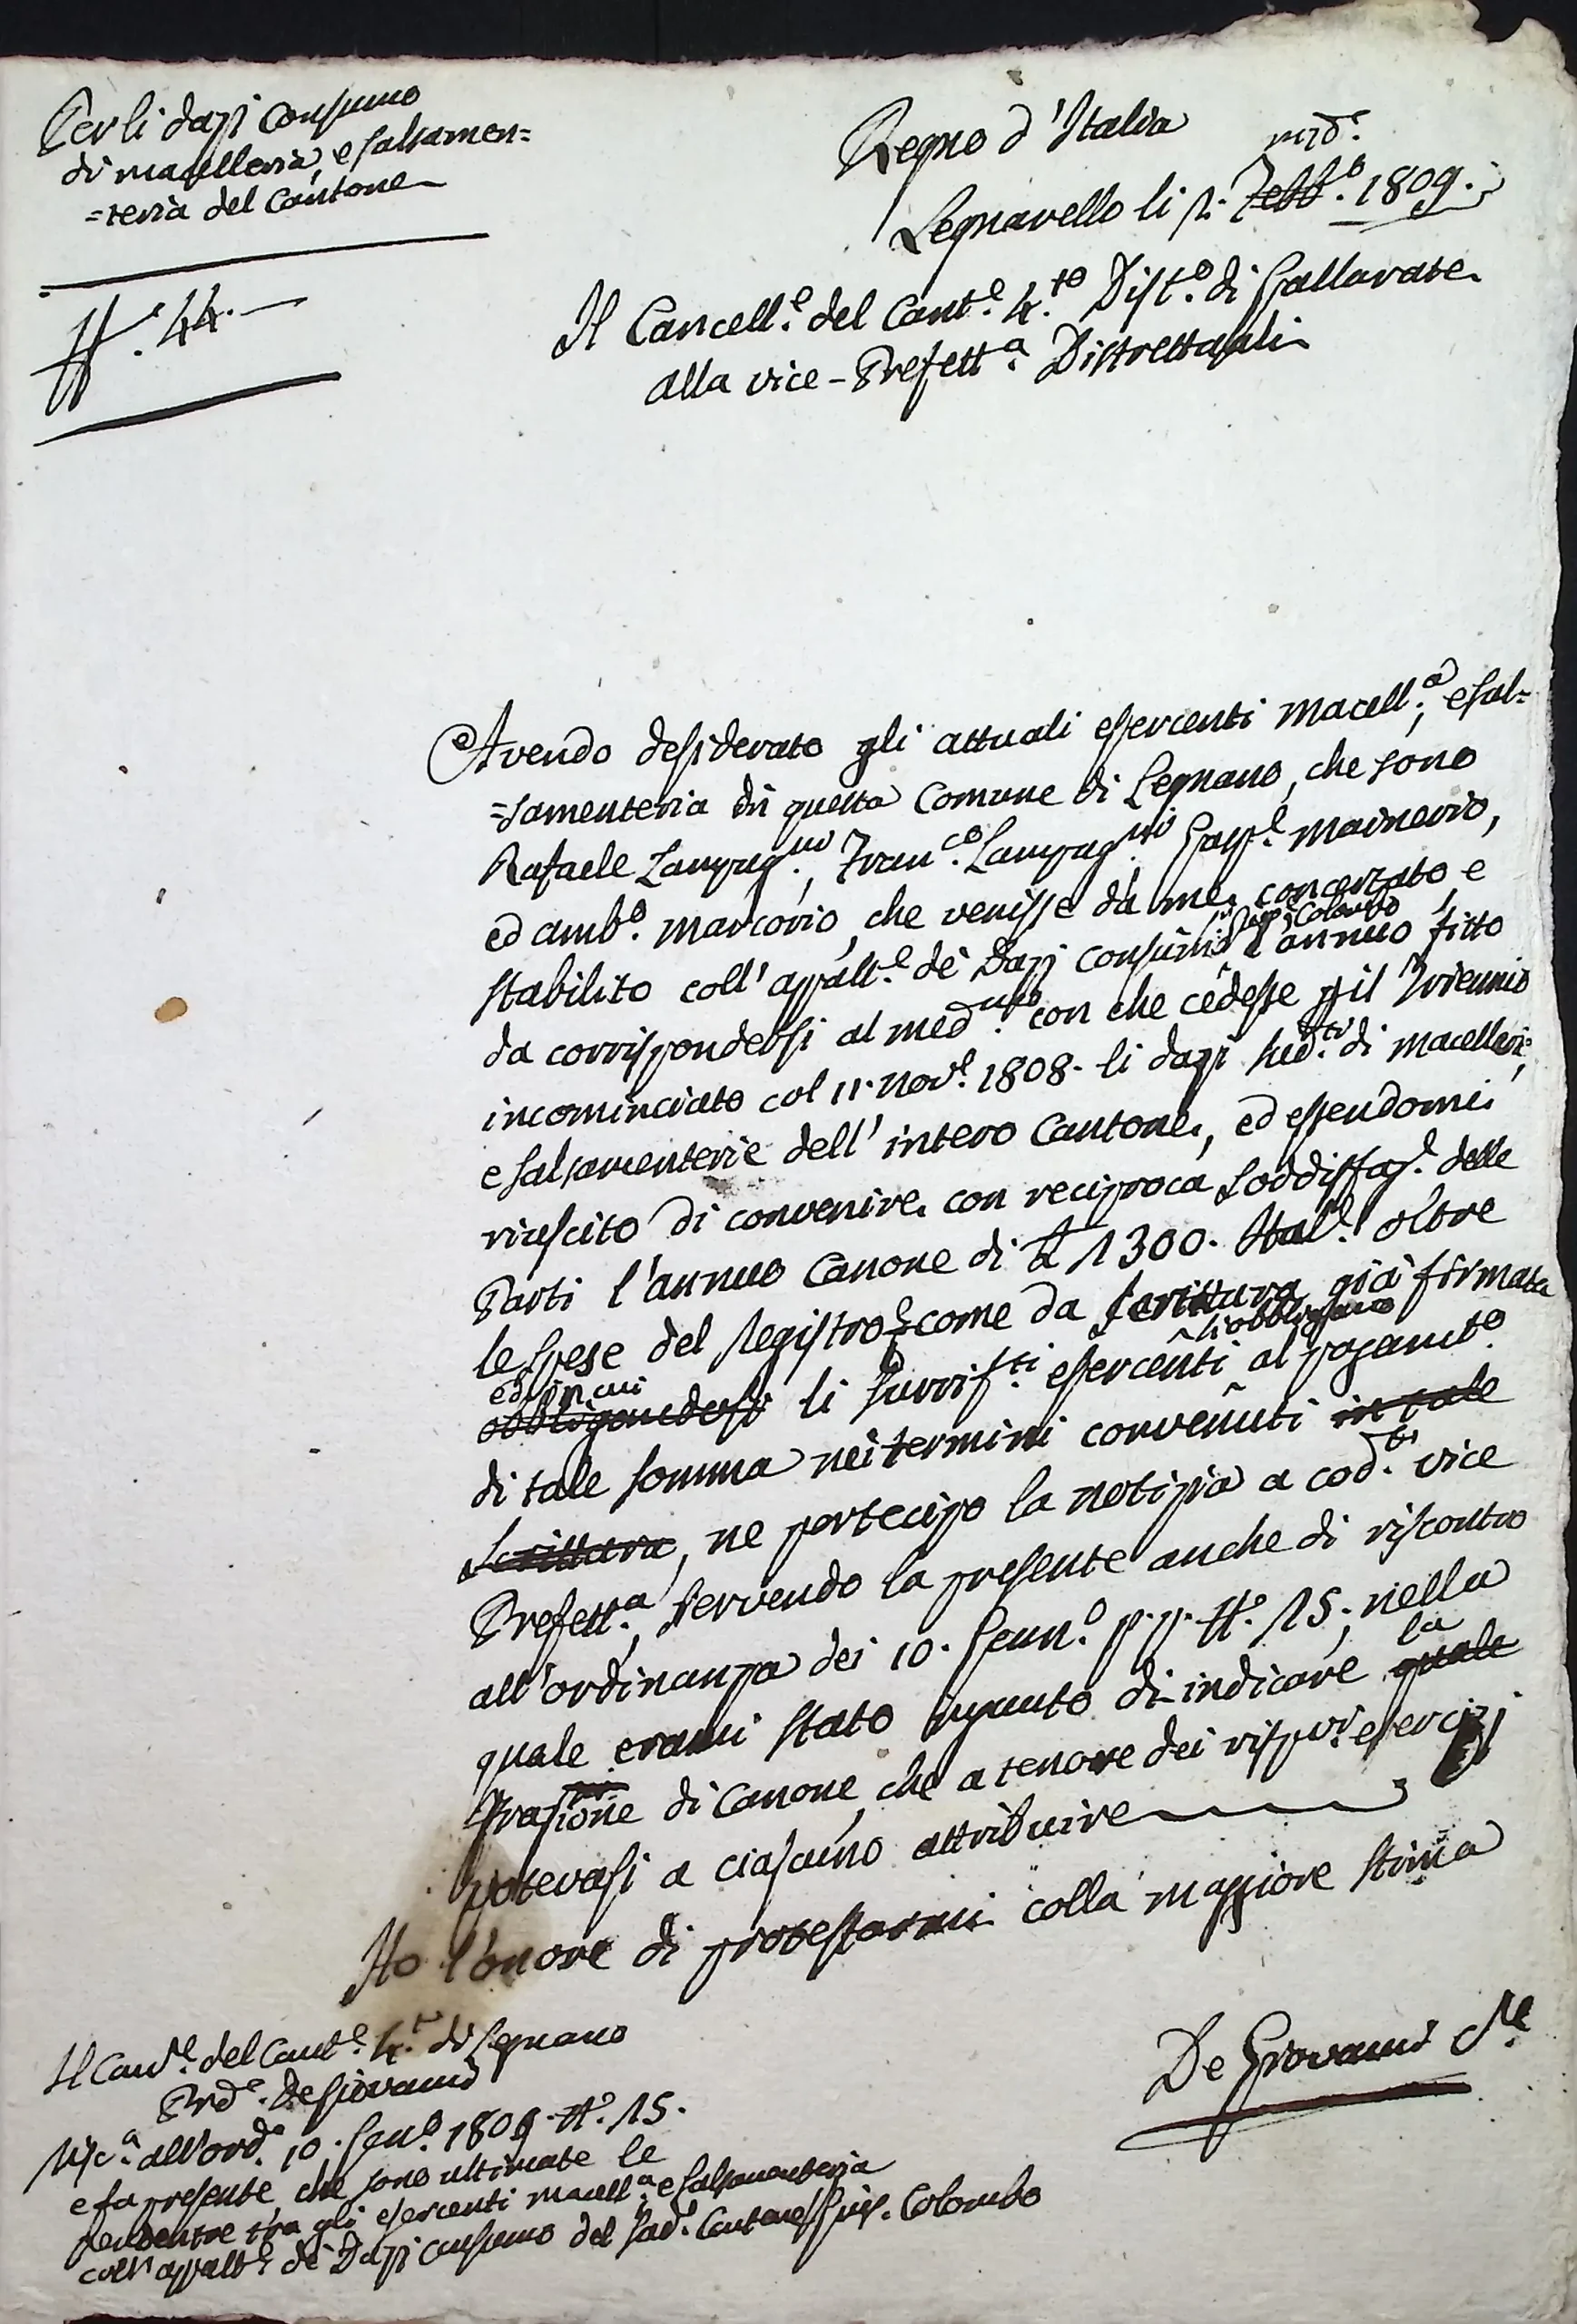 Per li dazj Consumo
di macelleria, e salsamen=
=teria del Cantone
N.° 44.
Regno d'Italia
Legnarello li 1. Febb.° 1809.
Il Cancell.e del Cant.e 4.to Dist.o di Gallarate
alla vice-Prefett.a Distrettuale
Avendo desiderato gli attuali esercenti macell.a, e sal=
=samenteria di questa Comune di Legnano, che sono
Rafaele Lampug.ni, Fran.co Lampug.ni Gasp.e Mainerio,
ed amb.o Marcorio, che venisse da me concertato, e
stabilito coll'appalt.e de Dazj consumo Giusp.e Colombo l'annuo fitto
da corrispondersi al med.mo con che cedesse p il Triennio
incominciato col 11. Nov.e 1808. li dazj sud.ti di macelleria,
e salsamenterie dell'intero Cantone, ed essendomi
riuscito di convenire con reciproca soddisfaz.e delle
Parti l'annuo Canone di £ 1300. Ital.e oltre
le spese del Registro, come da scrittura già firmata
ed in cui obbligandosi li surrif.ti esercenti si obbligano al pagam.to
di tale somma nei termini convenuti in tale
scrittura, ne partecipo la notizia a cod.ta vice
Prefett.a, servendo la presente anche di riscontro
all'ordinanza dei 10. Genn.o p.p. N.° 15, nella
quale erami stato ingiunto di indicare quale la
frazione di Canone, che a tenore dei rispvi esercizj
potevasi a ciascuno attribuire
Ho l'onore di protestarmi colla maggiore stima
De Giovanni
Il Canc.e del Cant.e 4.to di Legnano
Prd.e De Giovanni
Risc.a all'ord.e 10. Gen.o 1809. N.° 15.
e fa presente, che sono ultimate le
pendenze tra gli esercenti macell.a e salsamenteria
coll'appalt.e de Dazj consumo del sud.o Cantone Giusp. Colombo